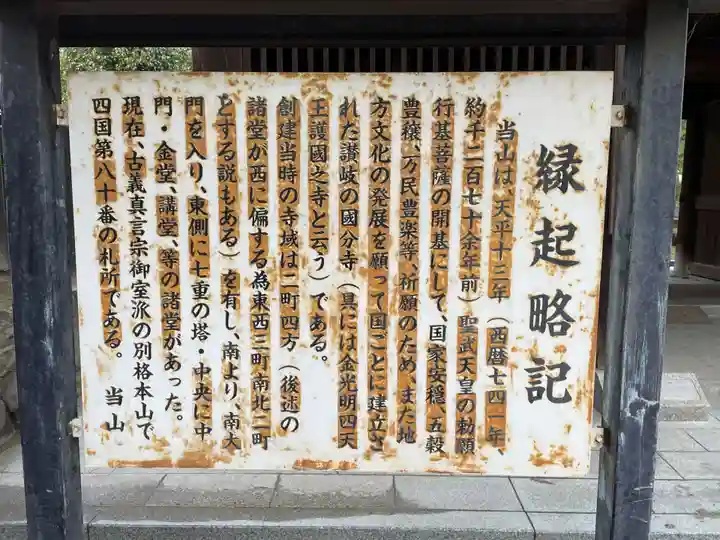 縁起略記
当山は、天平十三年（西暦七四一年、
約千二百七十余年前）聖武天皇の勅願
行基菩薩の開基にして、国家安穏、五穀
豊穣、万民豊楽等、祈願のため、また地
方文化の発展を願って国ごとに建立さ
れた讃岐の國分寺（具には金光明四天
王護國之寺と云う）である。
創建当時の寺域は二町四方（後述の
諸堂が西に偏する為東西三町南北二町
とする説もある）を有し、南より、南大
門を入り、東側に七重の塔・中央に中
門・金堂、講堂、等の諸堂があった。
現在、古義真言宗御室派の別格本山で
四国第八十番の札所である。　当山